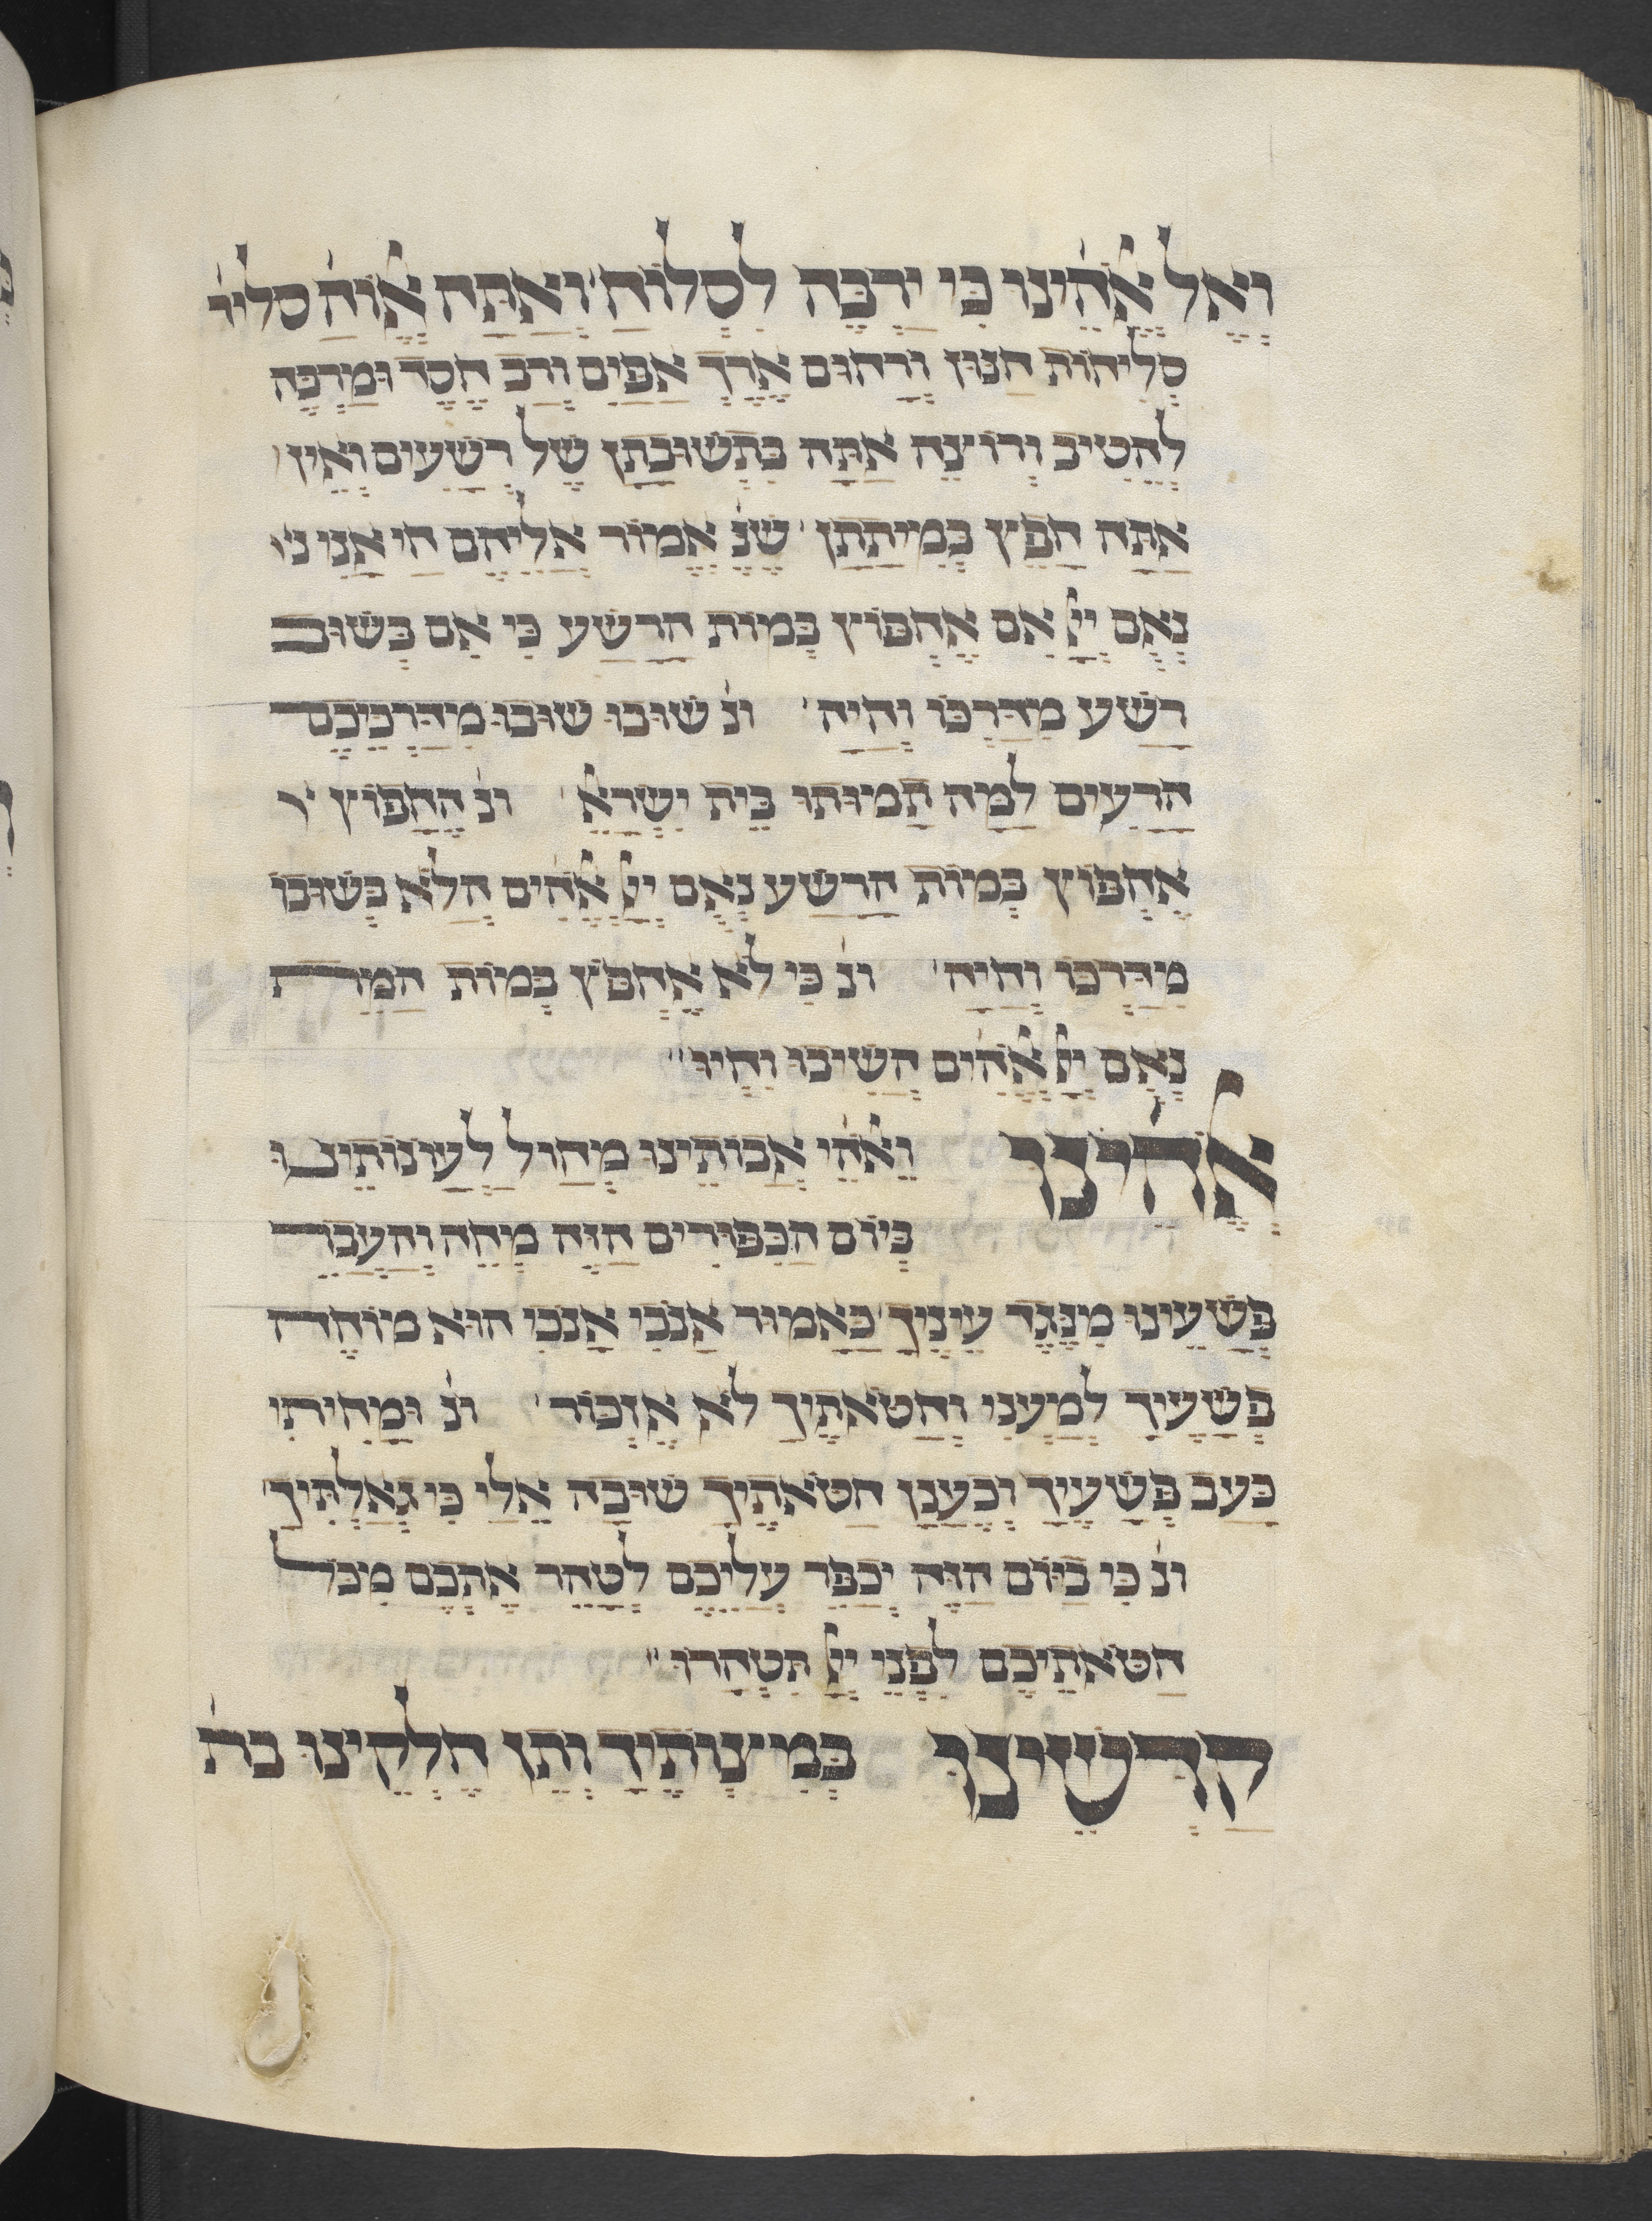 וְאֶל אֱלֹהֵ֗ינוּ כִּי יַרְבֶּה לִסְלוֹחַ וְאַתָּה אֱלוֹהַּ סליו׳
סְלִיחוֹת חַנּוּן וְרַחוּם אֶרֶךְ אַפַּיִם וְרַב חֶסֶד וּמַרְבֶּה
לְהֵטִיב וְרוֹצֶה אַתָּה בִּתְשׁוּבָתָן שֶׁל רְשָׁעִים וְאֵין
אַתָּה חָפֵץ בְּמִיתָתָן׳ שֶׁנֶּ אֱמוֹר אֲלֵיהֶם חַי אָנִי נ׳
נְאֻם יְיָ אִם אֶחְפּוֹץ בְּמוֹת הָרָשָׁע כִּי אִם בְּשׁוּב
רָשָׁע מִדַּרְכּוֹ וְחָיָה׳ ונ׳ שׁוּבוּ שׁוּבוּ מִדַּרְכֵיכֶם
הָרָעִים לָמָּה תָמוּתוּ בֵּית יִשְׂרָאֵ׳ ונ׳ הֶחָפוֹץ י
אֶחְפּוֹץ בְּמוֹת הָרָשָׁע נְאֻם יְיָ אֱלֹהִ֗ים הֲלֹא בְּשׁוּבוֹ
מִדְּרָכָּו וְחָיָה׳ ונ׳ כִּי לֹא אֶחְפֹּץ בְּמוֹת הַמֵּת
נְאֻם יְיָ אֱלֹהִ֗ים הָשִׁיבוּ וִחְיוּ׳׳
אֱלֹהֵ֗ינוּ וֵאלֹהֵ֗י אֲבוֹתֵינוּ מְחוֹל לַעֲוֹנוֹתֵינוּ
בְּיוֹם הַכִּפּוּרִים הַזֶּה מְחֵה וְהַעֲבֵר
פְּשָׁעֵינוּ מִנֶּגֶד עֵינֶיךָ׳ כָּאָמוּר אָנֹכִי אָנֹכִי הוּא מוֹחֶה
פְשָׁעֶיךָ לְמַעֲנִי וְחַטֹּאתֶיךָ לֹא אֶזְכּוֹר׳ ונ׳ וּמָחִיתִי
כָּעָב פְּשָׁעֶיךָ וְכֶעָנָן חַטֹּאתֶיךָ שׁוּבָה אֵלַי כִּי גְאַלְתִּיךָ׳
ונ׳ כִּי בַיּוֹם הַזֶּה יְכַפֵּר עֲלֵיכֶם לְטַהֵר אֶתְכֶם מִכֹּל
חַטֹּאתֵיכֶם לִפְנֵי יְיָ תִּטְהָרוּ׳׳
קַדְּשֵׁינוּ בְּמִיצְוֹתֶיךָ וְתֵן חֶלְקֵינוּ בת׳